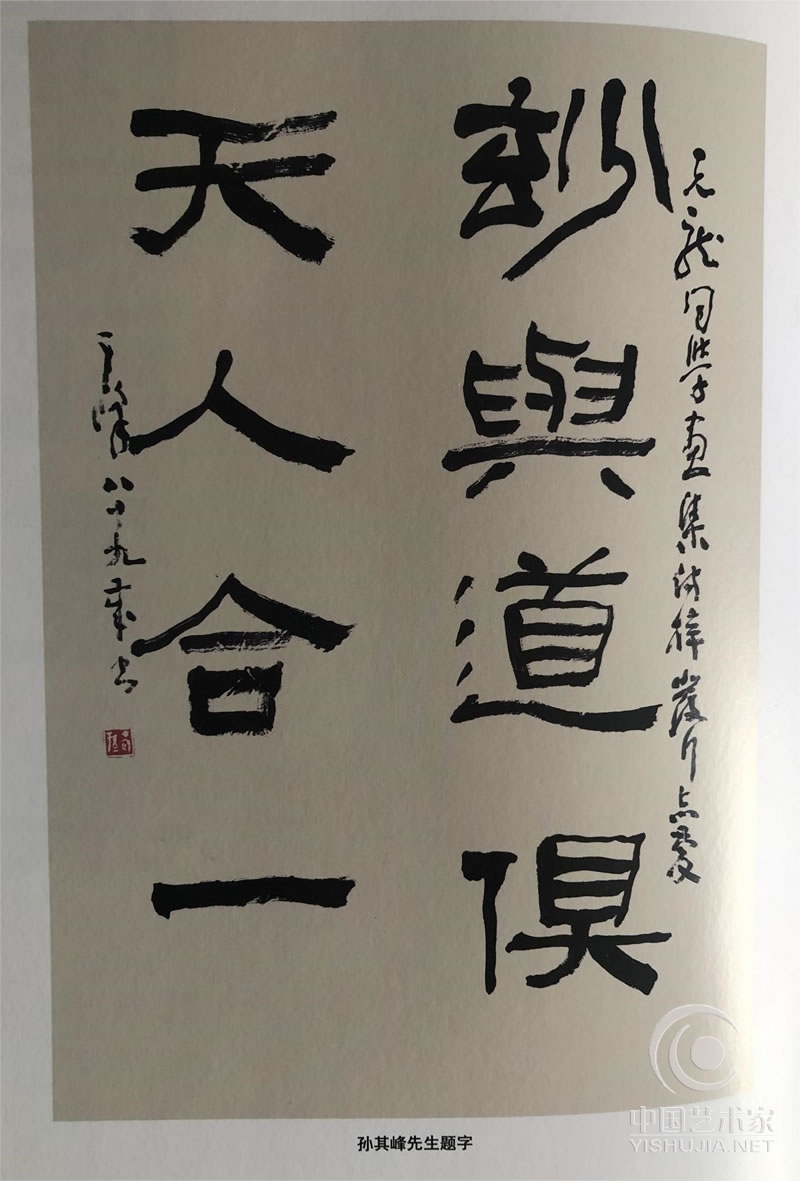 龍同學畫集付梓
玅與道俱
天人合一
其峰八十九歲書
中国艺术家
YISHUJIA.NET
孙其峰先生题字